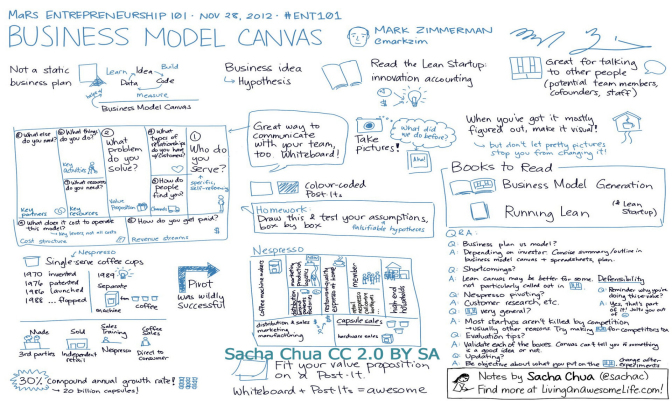 MaRS ENTREPRENEURSHIP 101 · NOV 28, 2012 · #ENT101
BUSINESS MODEL CANVAS
MARK ZIMMERMAN
@markzim
Not a static
business plan
Learn
Idea
Build
Data
Code
Measure
Business Model Canvas
Business idea
↳ Hypothesis
Read the Lean Startup:
innovation accounting
Great for talking
to other people
(potential team members,
cofounders, staff)
① Who do
you
serve?
specific,
② What
problem
do you
solve?
Value
Proposition
③ How do
people
find you?
Channels
④ What
types of
relationships
do you have
w/customers?
⑤ How do you get paid?
Revenue streams
$
What things
do you do?
Key
activities
What resources
do you need?
Key
resources
What else do
you need?
Key
partners
What does it cost to operate
this model?
Key levers, not all costs
Cost structure
Great way to
communicate
with your team,
too. Whiteboard!
Take
pictures!
What did
we do
before?
Aha!
When you've got it mostly
figured out, make it visual!
↳ but don't let pretty pictures
stop you from changing it!
colour-coded
Post-Its
Homework:
Draw this & test your assumptions,
box by box
falsifiable hypotheses
Books to Read
Business Model Generation
Running Lean
(& Lean
Startup)
Nespresso
Single-serve coffee cups
1970 invented
1976 patented
1986 launched
1988 ... flopped
1989
Separate
machine
from
coffee
Pivot
was wildly
successful
Made
3rd parties
Sold
Independent
retail
Sales
Training
Nespresso
Coffee
Sales
Direct to
Consumer
30% compound annual growth rate!
↳ 20 billion capsules!
Nespresso
coffee machine makers
distribution & sales
marketing
manufacturing
capsule sales
hardware sales
Fit your value proposition
on a Post-It.
Whiteboard + Post-Its = awesome
Q&A:
Q: Business plan vs model?
A: Depending on investor: Concise summary/outline in
business model canvas + spreadsheets, plan.
Q: Shortcomings?
A: Lean canvas may be better for some. Defensibility
not particularly called out in
Q: Nespresso pivoting?
A: Customer research, etc.
Q: Reminder why you're
doing this venture
A: Yes, that's
part of it!
Q: very general?
A: Most startups aren't killed by competition
→ usually other reasons. Try making for competitors too
Q: Evaluation tips?
A: Validate each of the boxes. Canvas can't tell you if something
is a good idea or not.
Q: Updating?
A: Be objective about what you put on the
change after
experiments
Sacha Chua CC 2.0 BY SA
Notes by Sacha Chua (@sachac)
Find more at LivingAnAwesomeLife.com!